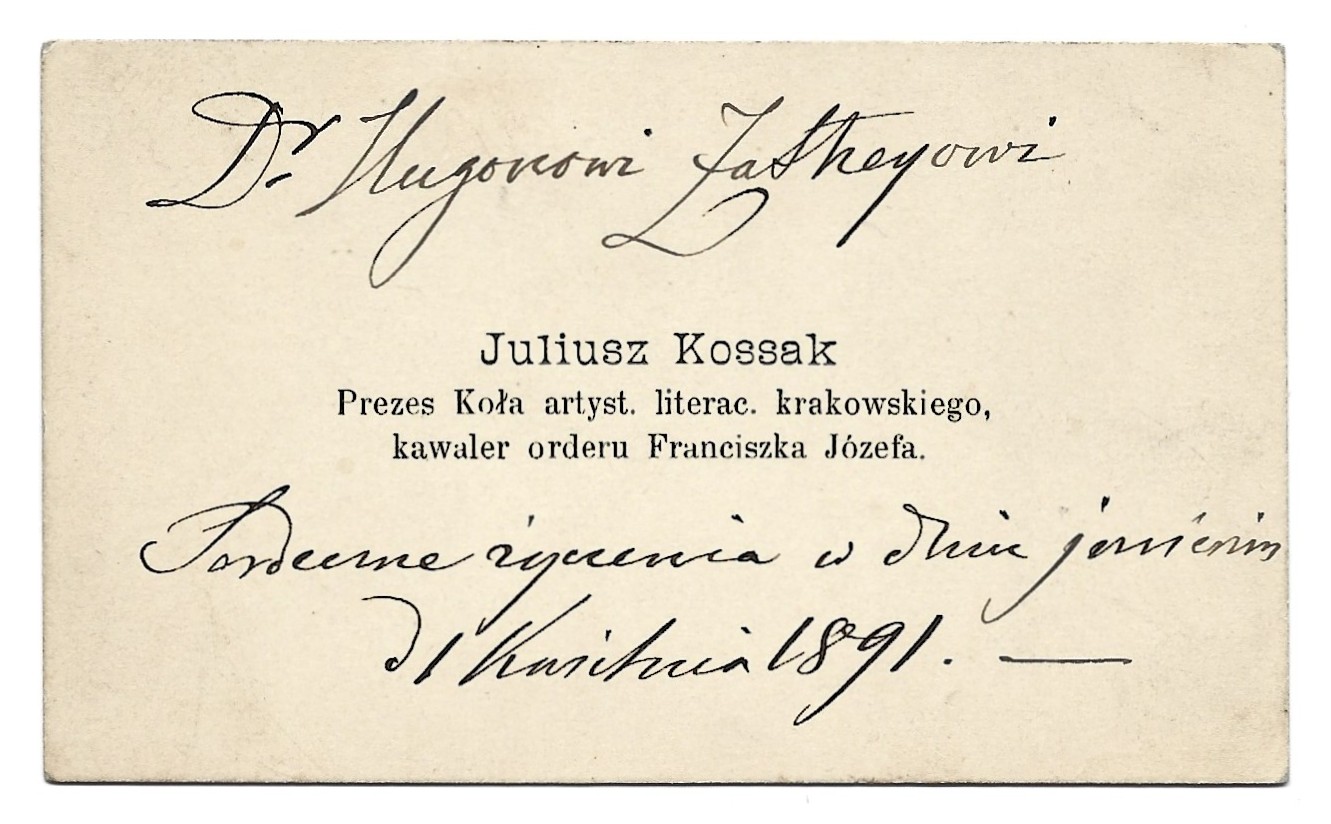 Dr Hugonowi Zatheyowi
Juliusz Kossak
Prezes Koła artyst. literac. krakowskiego,
kawaler orderu Franciszka Józefa.
Serdeczne życzenia w dniu imienin
d 1 Kwietnia 1891. —